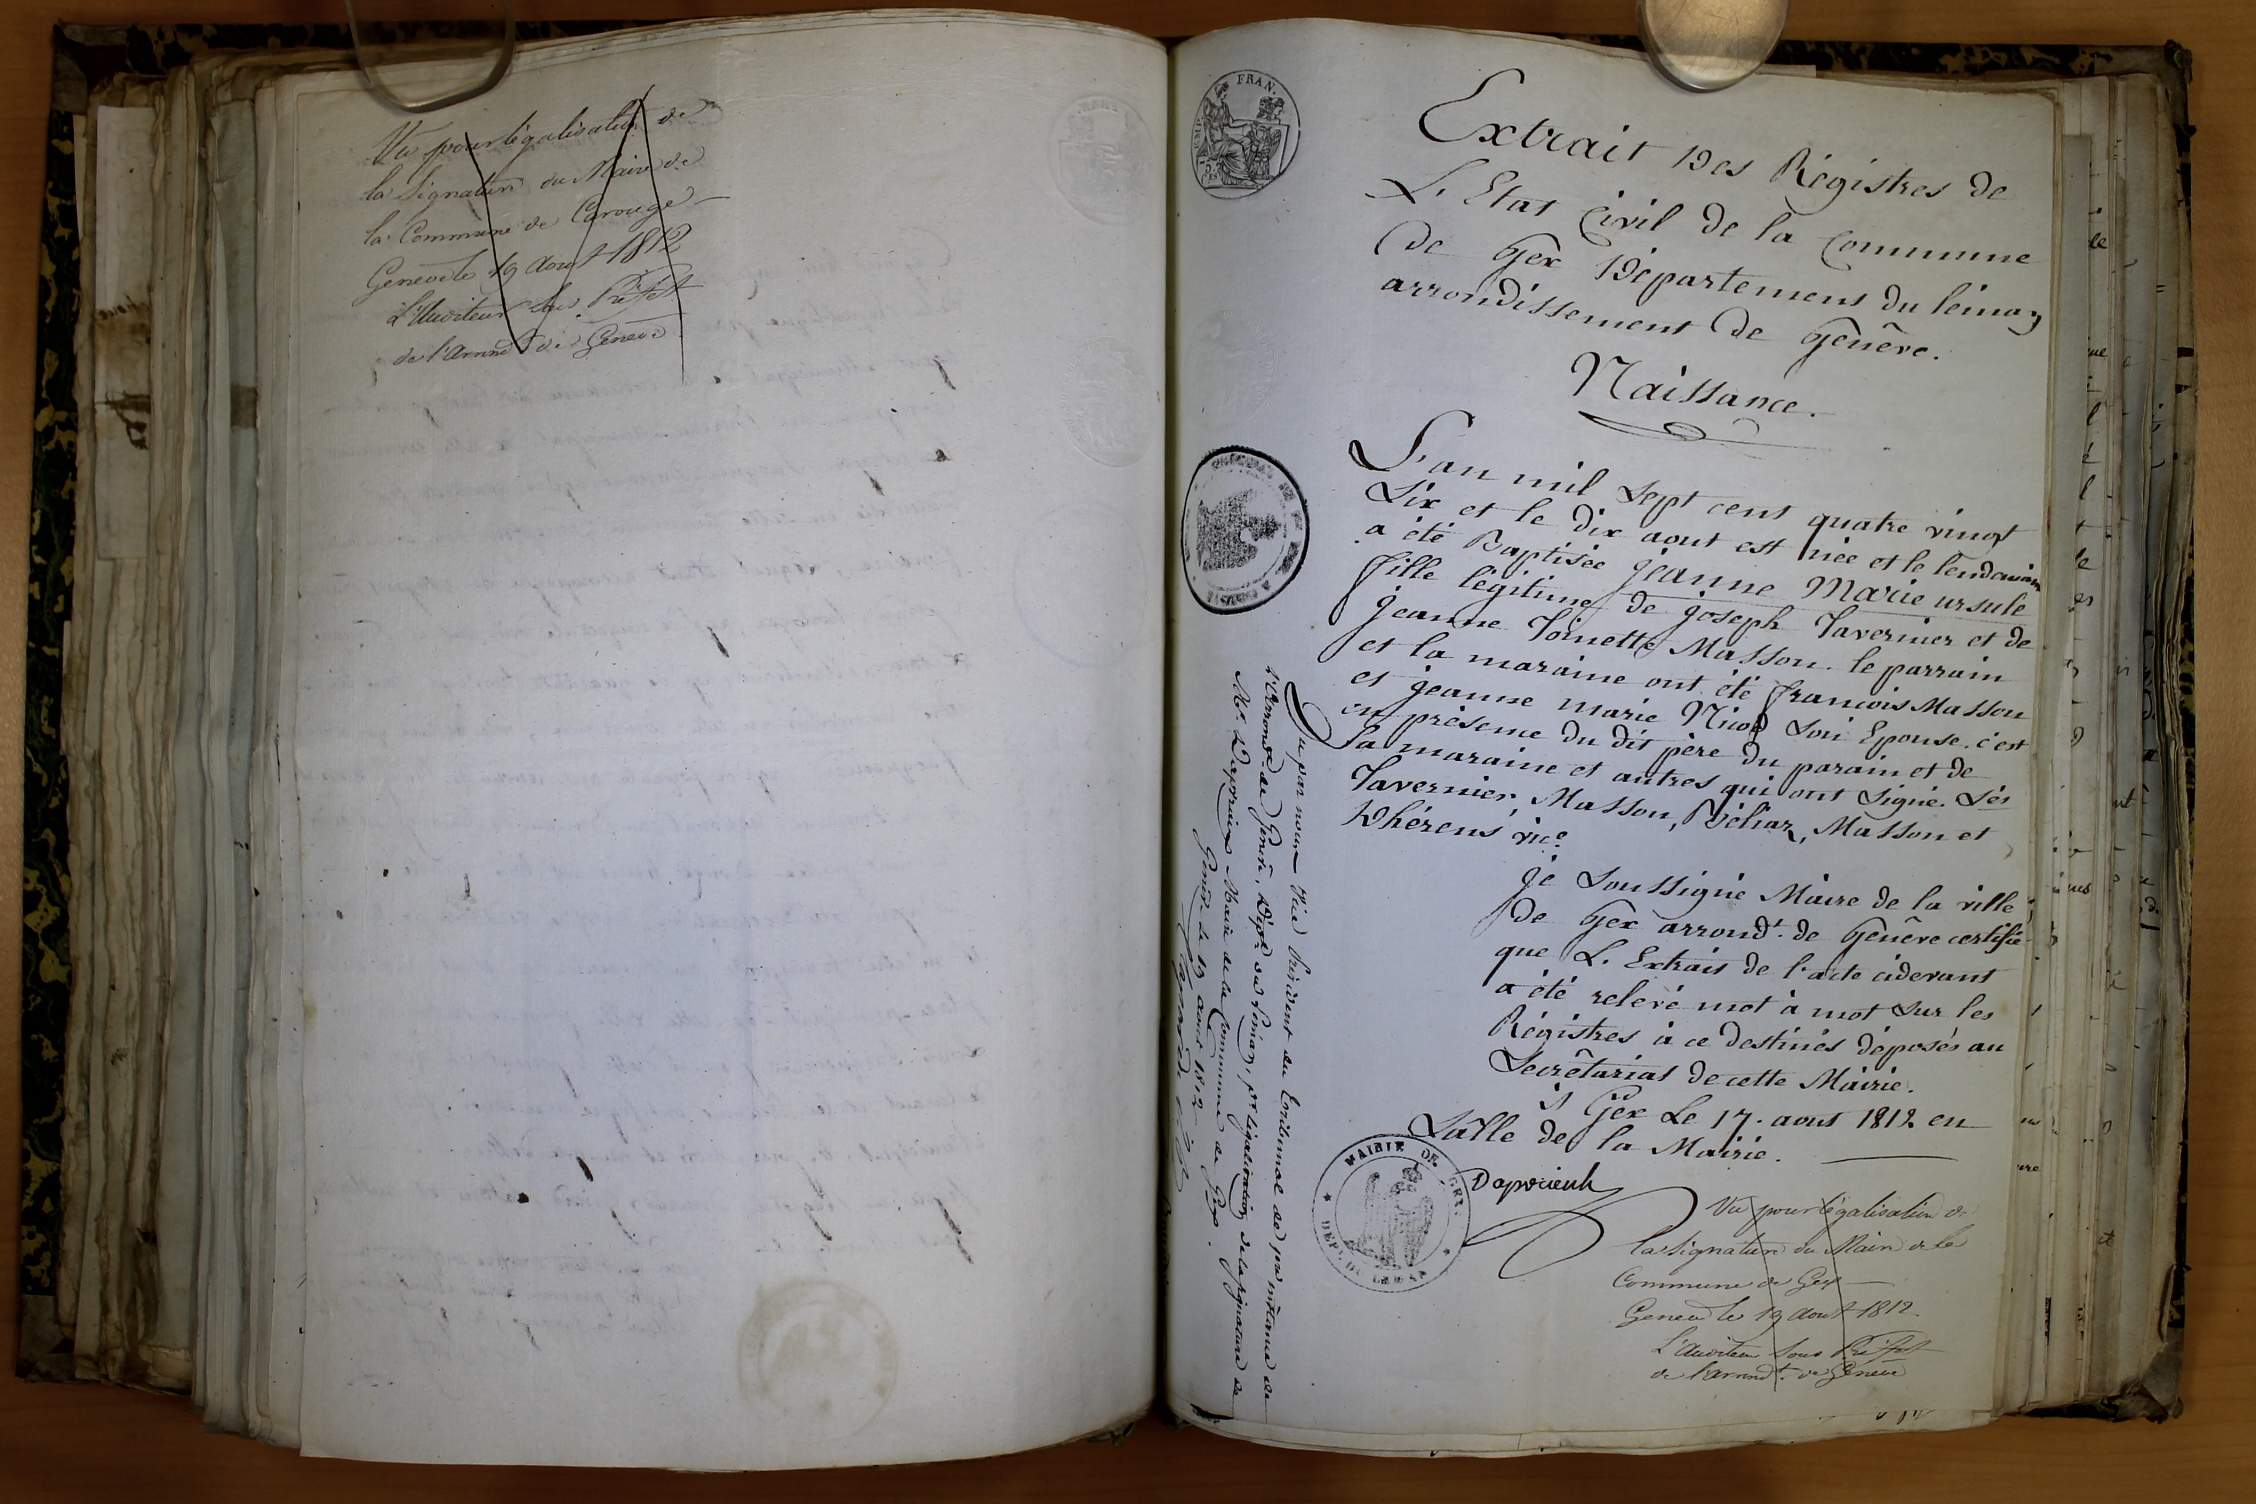 Vu pour légalisation de
la Signature du Maire de
la Commune de Carouge
Geneve le 19 Aout 1812
L'Auditeur Sous Préfet
de l'Arrond.t de Geneve
FRAN.
Extrait Des Régistres de
L'Etat Civil de la Commune
De Gex Département du léman
arrondissement De Genêve.
Naissance.
L'an mil sept cent quatre vingt
Six et le dix aout est née et le lendemain
a été Baptisée jeanne Marie ursule
fille légitime de joseph Tavernier et de
jeanne Toinette Masson. le parrain
et la maraine ont été françois Masson
et jeanne marie Nicod Son Epouse. c'est
en présence du dit père du parain et de
la maraine et autres qui ont signé. Sés
Tavernier, Masson, Béliaz, Masson et
Dhérens vic.e
je soussigné Maire de la ville
De Gex arrond.t de Genêve certifie
que L'Extrait de l'acte cidevant
a été relevé mot à mot sur les
Régistres à ce destinés déposés au
Secrêtariat de cette Mairie.
à Gex Le 17. aout 1812 en
Salle de la Mairie.
MAIRIE DE GEX.
DEP. DU LEMAN
Vu pour légalisation de
la Signature du Maire de la
Commune de Gex
Geneve le 19 Aout 1812.
L'Auditeur Sous Préfet
de l'arrond.t de Geneve
Vu par nous Vice Président du Tribunal de p.re instance de
l'Arrond.t de Genève, Dép.t du Léman, p.r légalisation de la signature de
M.r Maire de la Commune de Gex.
Genève le 19 aout 1812